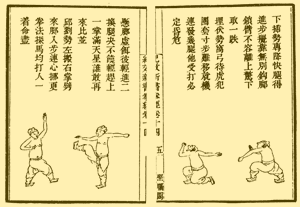 下插勢專降快腿得
進步攪靠無別鈎脚
鎖臂不容離上驚下
取一跌
埋伏勢窩弓待虎犯
圈套寸步難移就機
連發幾腿他受打必
定昏危
五
懸脚虛餌彼輕進二
換腿決不饒輕趕上
一掌滿天星誰敢再
來比並
邱劉勢左搬右掌劈
來脚入步連心挪更
拳法探馬均打人一
着命盡